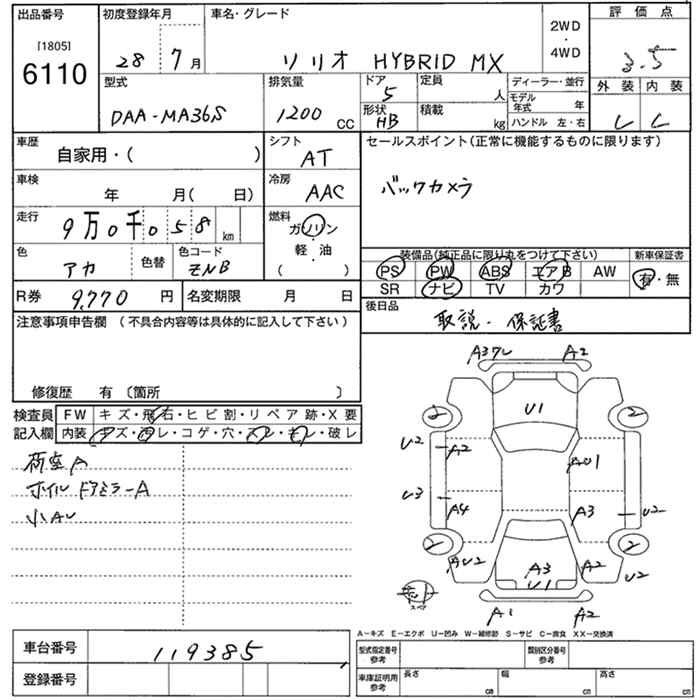 出品番号 初度登録年月 車名・グレード 2WD・4WD 評価点
[1805]
6110 28 7月 ソリオ HYBRID MX 3.5
型式 排気量 ドア 定員 ディーラー・並行 外装 内装
DAA-MA36S 1200 CC 5 人 モデル年式 年
形状 積載 ハンドル 左・右
HB kg
車歴 自家用・( ) シフト AT セールスポイント(正常に機能するものに限ります)
車検 年 月( 日) 冷房 AAC バックカメラ
走行 9万0千058km 燃料 ガソリン・軽油 ( )
色 アカ 色替 色コード ZNB
装備品(純正品に限り丸をつけて下さい) 新車保証書
PS PW ABS エアB AW 有・無
SR ナビ TV カワ
R券 9,770円 名変期限 月 日 後日品
取説・保証書
注意事項申告欄 (不具合内容等は具体的に記入して下さい)
修復歴 有〔箇所 〕
検査員 FW キズ・飛石・ヒビ割・リペア跡・X要
記入欄 内装 コゲ・穴・破レ
荷室A
ホイル FドアミラーA
小AU
A3 A2
U1
2 2
U2 A2 AU1
U3 A4 A3 U2
2 2
AU2 A3 A2 U2
U1
スペア
A1 A2
A-キズ E-エクボ U-凹み W-補修跡 S-サビ C-腐食 XX-交換済
車台番号 119385 型式指定番号 参考 類別区分番号 参考
登録番号 車庫証明用 参考 長さ cm 幅 cm 高さ cm